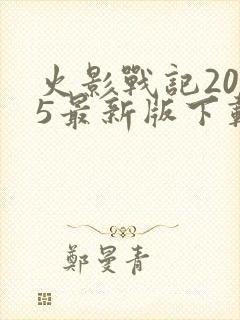 火影戰記20
5最新版下載
鄭曼青